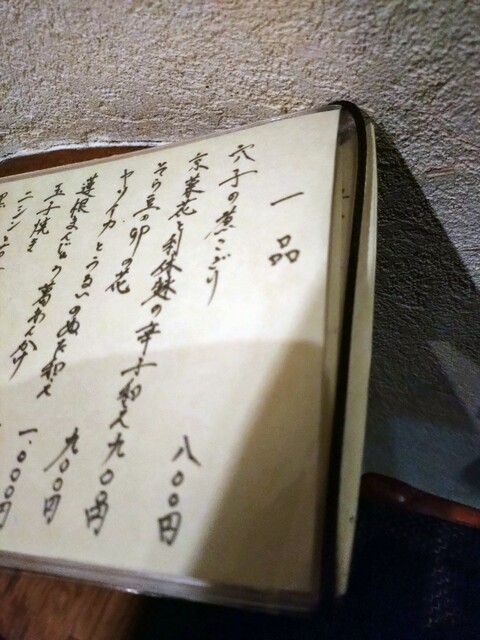 一品
穴子の煮こごり 八〇〇円
京菜花と利休麩の辛子和え 九〇〇円
そら豆の卯の花 九〇〇円
ヤリイカとうるいのぬた和え 一、〇〇〇円
蓮根まんじゅうの葛あんかけ
玉子焼き
ニシン